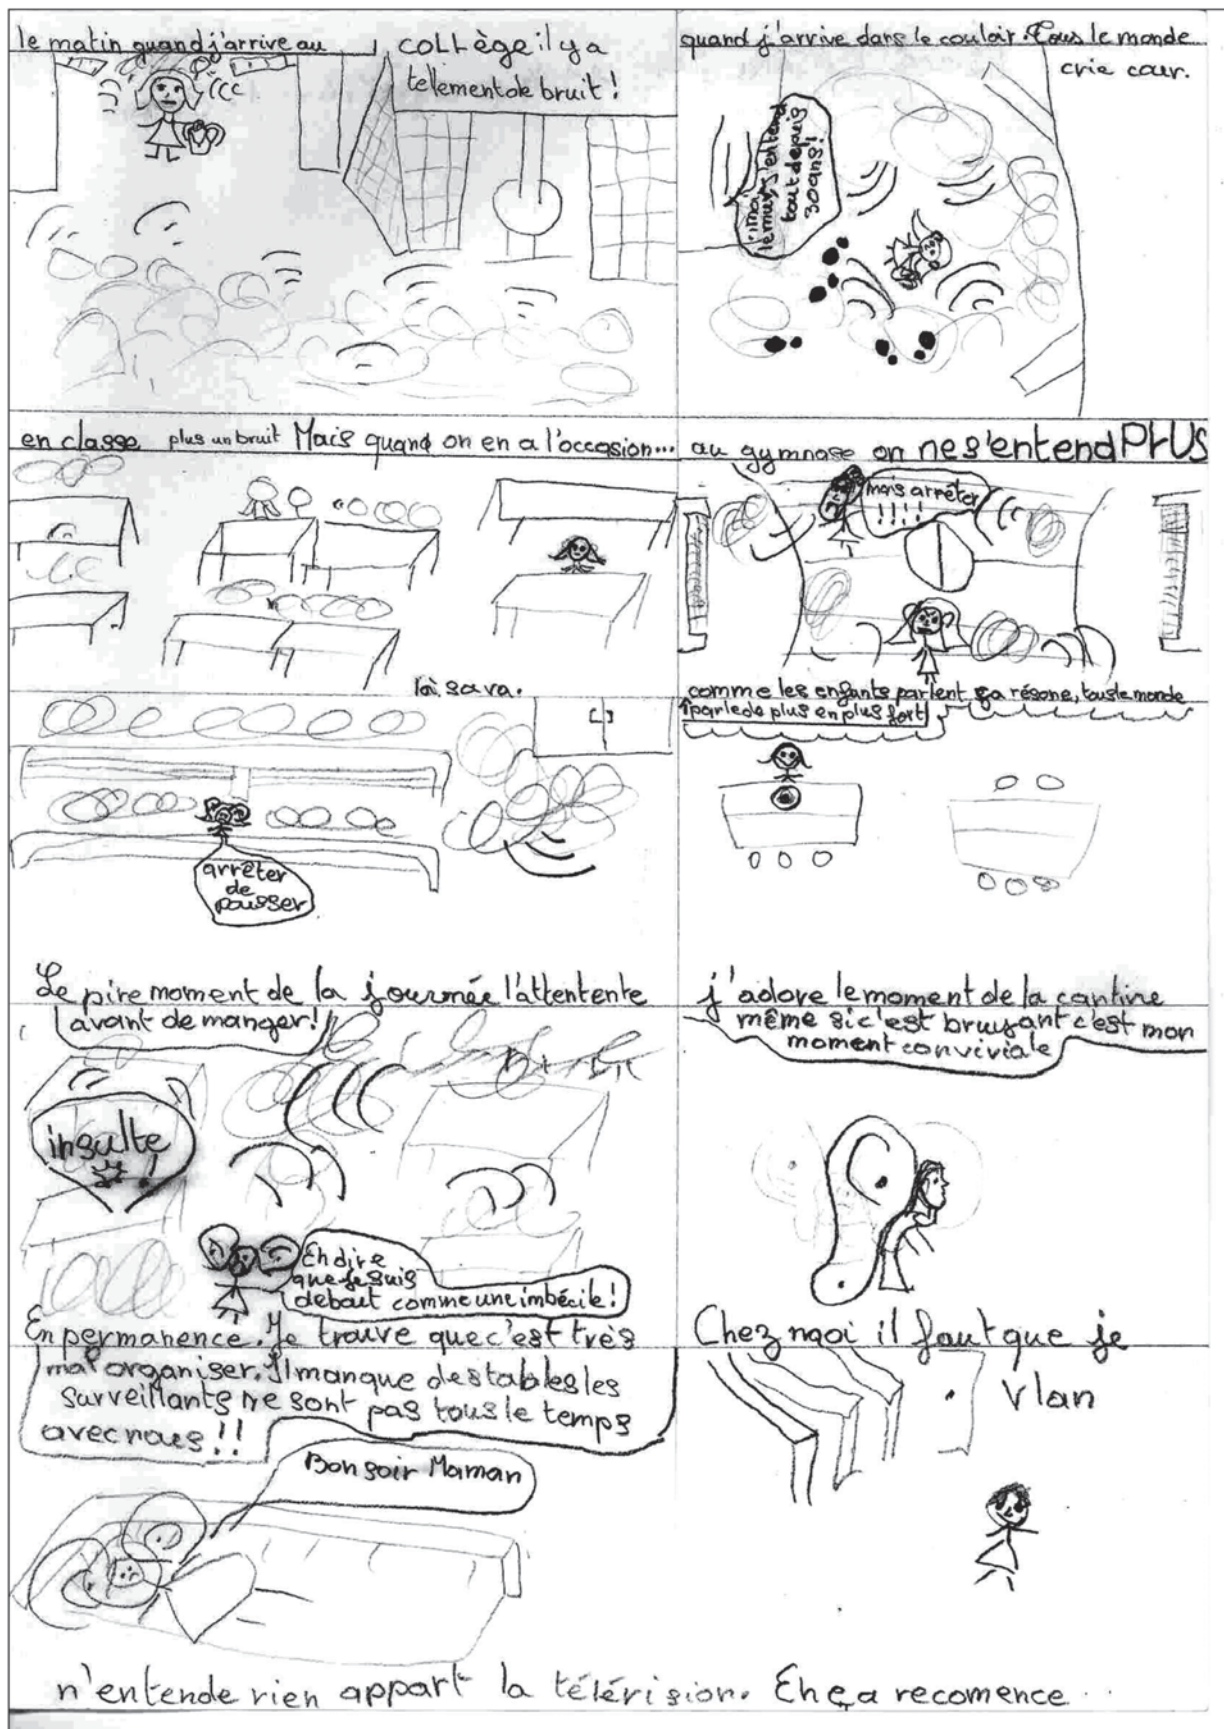 le matin quand j'arrive au
collège il y a
tellement de bruit !
quand j'arrive dans le couloir. Tous le monde
crie cour.
mais
le murs s'entend
tout depuis
30 ans !
en classe plus un bruit Mais quand on en a l'occasion...
au gymnase on ne s'entend PLUS
mais arrêter
!!!!
là sava.
arrêter
de
pousser
comme les enfants parlent ça résone, tous le monde
parle de plus en plus fort
Le pire moment de la journée l'attentente
avant de manger!
j'adore le moment de la cantine
même si c'est bruyant c'est mon
moment conviviale
insulte !
En dire
que je suis
debout comme une imbécile !
En permanence. Je trouve que c'est très
mal organiser. Il manque des tables les
surveillants ne sont pas tous le temps
avec nous !!
Chez moi il faut que je
Vlan
Bonsoir Maman
n'entende rien appart la télévision. Eh ça recomence ...